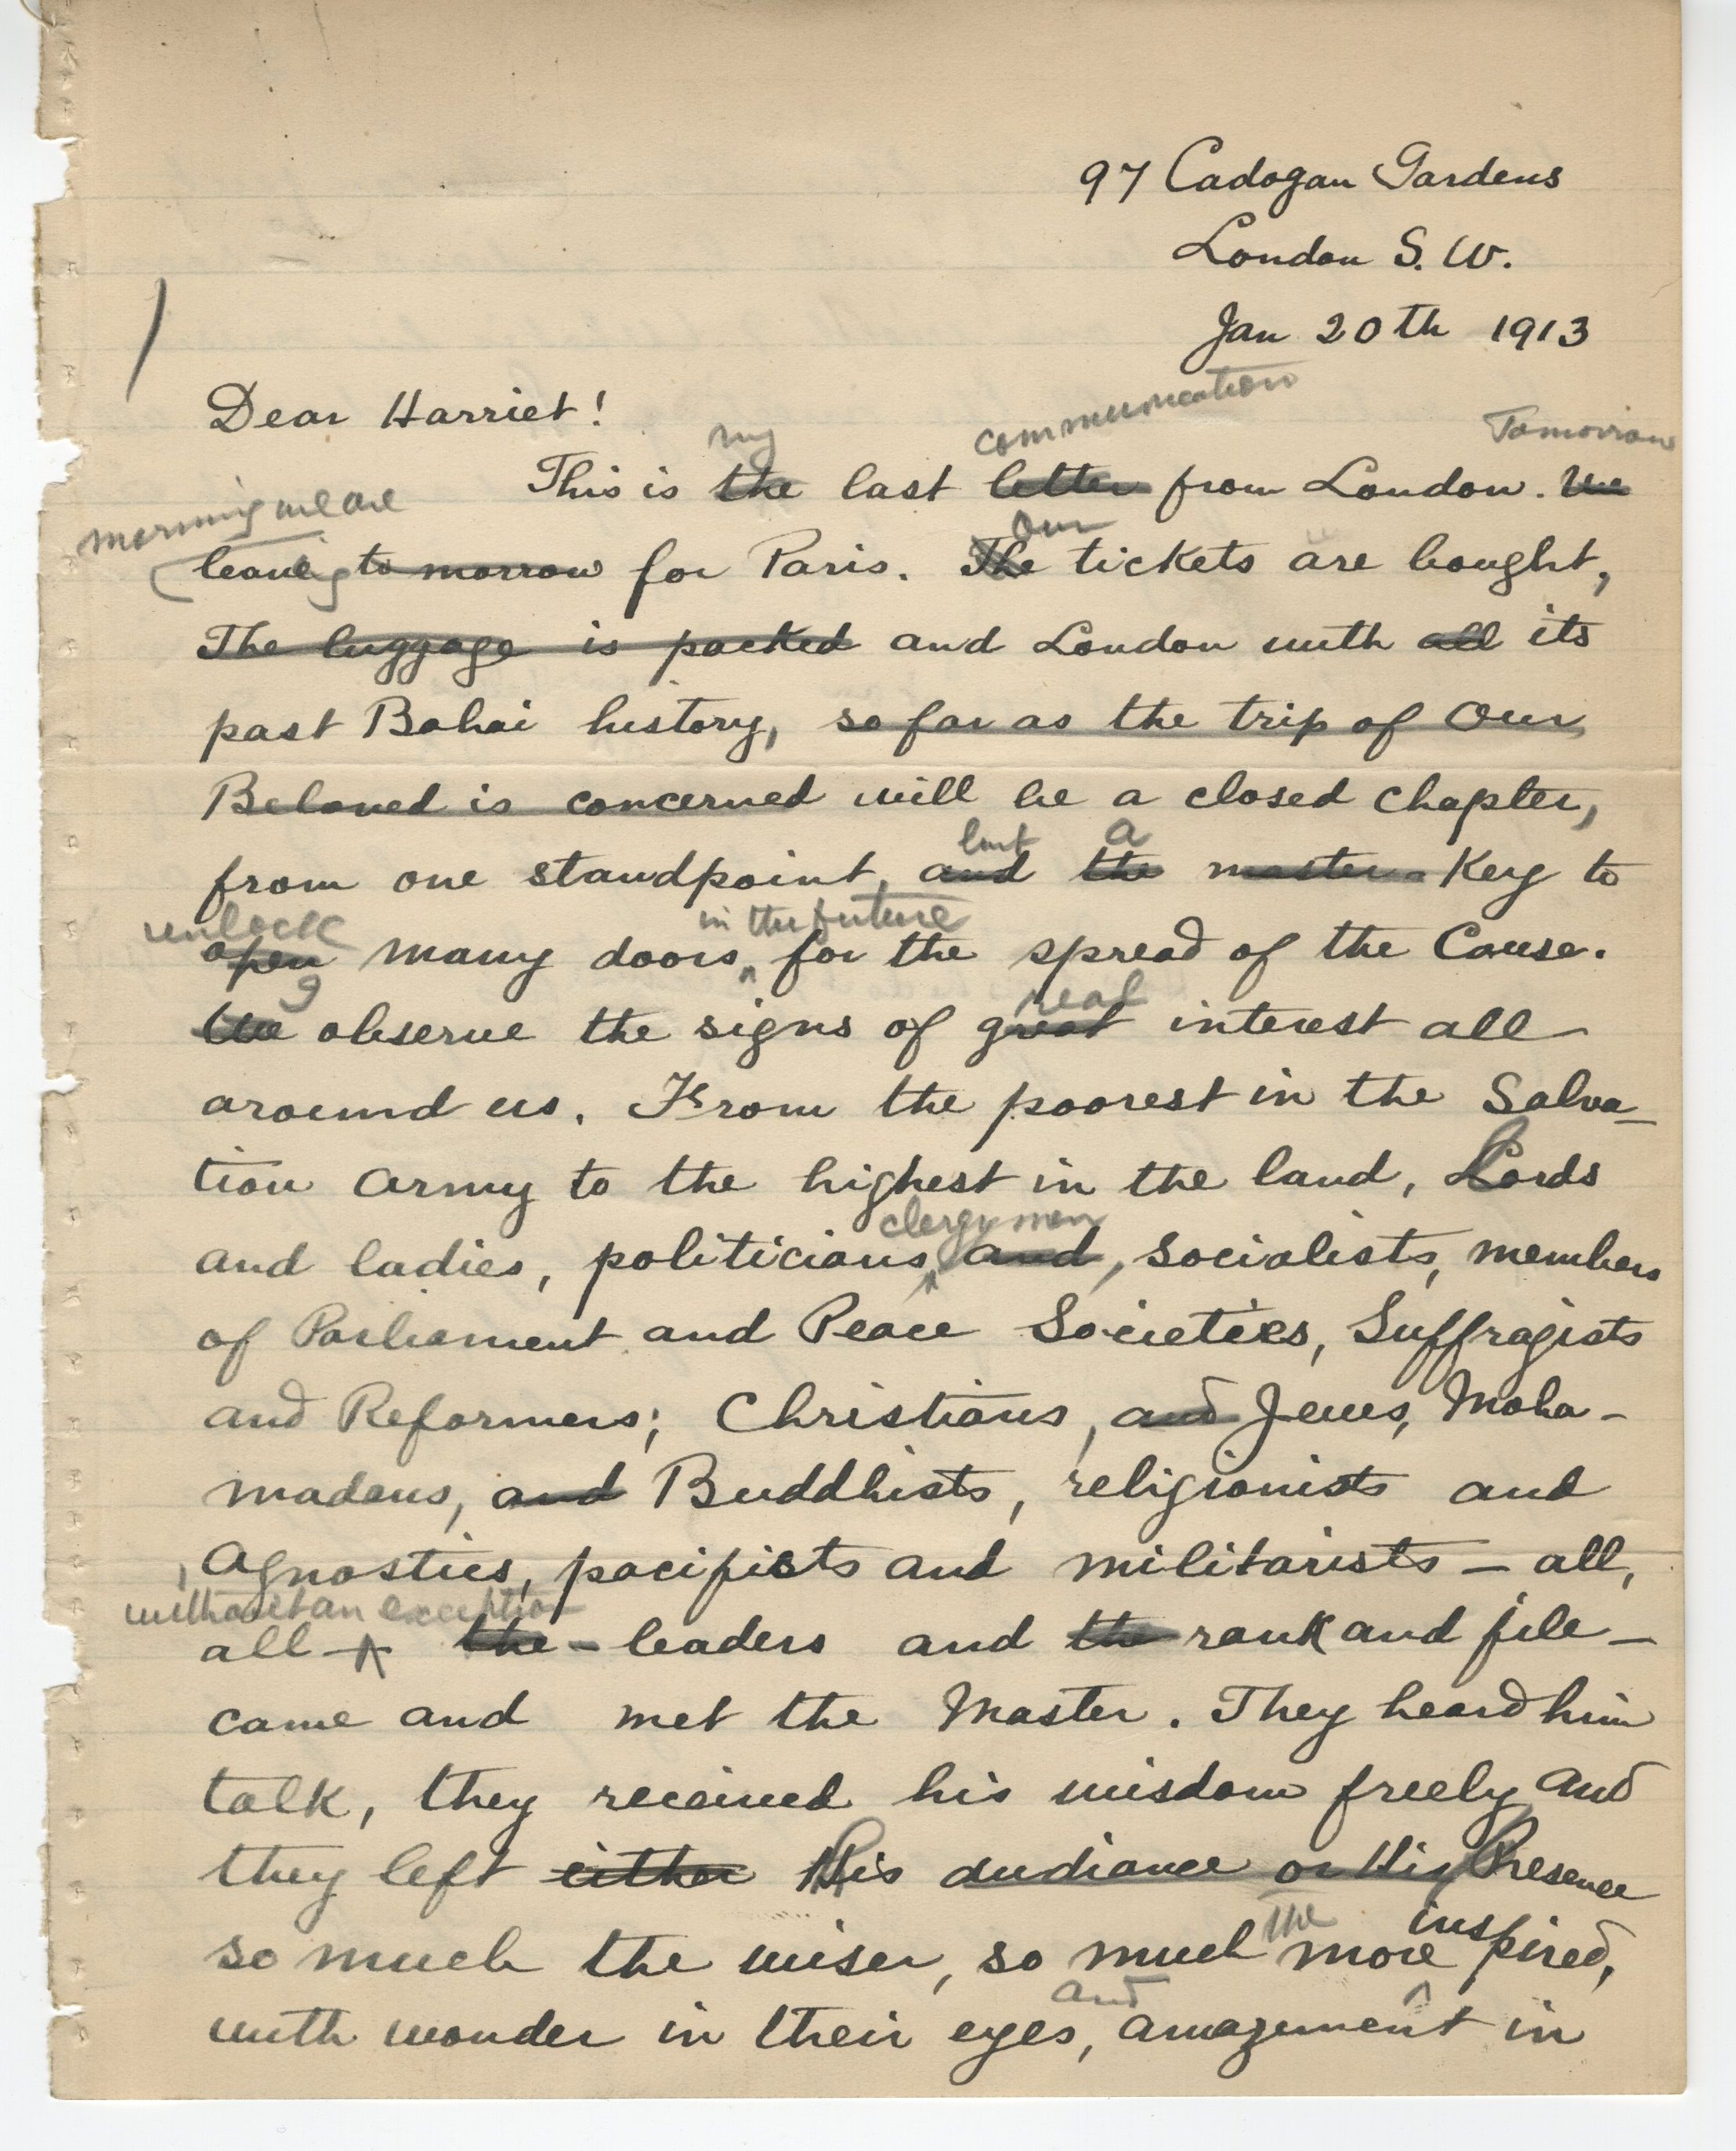 97 Cadogan Gardens
London S. W.
Jan 20th 1913
Dear Harriet!
my communication Tomorrow
This is the last letter from London. We
morning we are Our
leaving to morrow for Paris. The tickets are bought,
The luggage is packed and London with all its
past Bahai history, so far as the trip of Our
Beloved is concerned will be a closed chapter,
but a
from one standpoint, and the master-Key to
unlock in the future
open many doors, for the spread of the Cause.
I real
We observe the signs of great interest all
around us. From the poorest in the Salva-
tion Army to the highest in the land, Lords
clergymen
and ladies, politicians, and, socialists, members
of Parliament and Peace Societies, Suffragists
and Reformers; Christians, and Jews, Moha-
madans, and Buddhists, religionists and
Agnostics, pacifists and militarists – all,
without an exception
all – the – leaders and the rank and file –
came and met the Master. They heard him
talk, they received his wisdom freely and
they left either His audiance or His Presence
the inspired,
so much the wiser, so much more
and
with wonder in their eyes, amazement in